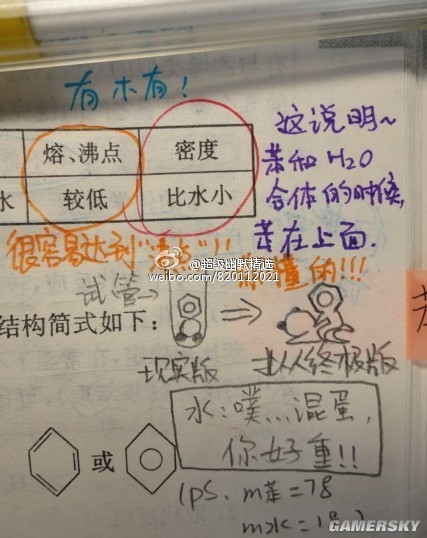 有木有！
熔、沸点 密度
水 较低 比水小
这说明~
苯和H2O
合体的时候,
苯在上面.
很容易达到“沸点”!!
你懂的!!!
@超级幽默精选
weibo.com/820112021
试管→
结构简式如下：
现实版
拟人终极版
或
水:噗...混蛋,
你好重!!
(PS. m苯=78
m水=18 )
GAMERSKY